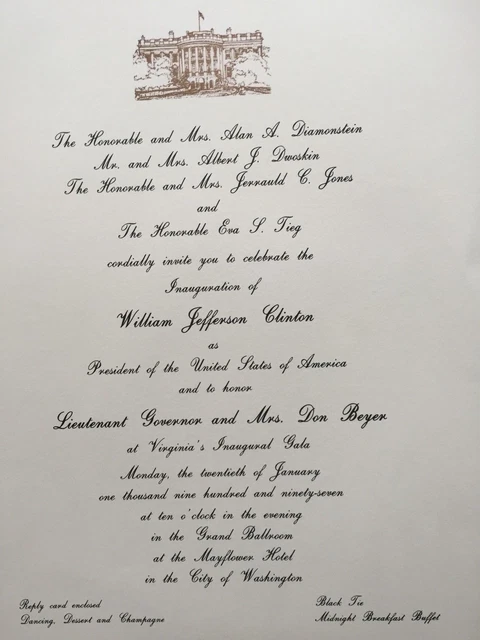 The Honorable and Mrs. Alan A. Diamonstein
Mr. and Mrs. Albert J. Dwoskin
The Honorable and Mrs. Jerrauld C. Jones
and
The Honorable Eva S. Tieg
cordially invite you to celebrate the
Inauguration of
William Jefferson Clinton
as
President of the United States of America
and to honor
Lieutenant Governor and Mrs. Don Beyer
at Virginia's Inaugural Gala
Monday, the twentieth of January
one thousand nine hundred and ninety-seven
at ten o'clock in the evening
in the Grand Ballroom
at the Mayflower Hotel
in the City of Washington
Reply card enclosed
Dancing, Dessert and Champagne
Black Tie
Midnight Breakfast Buffet